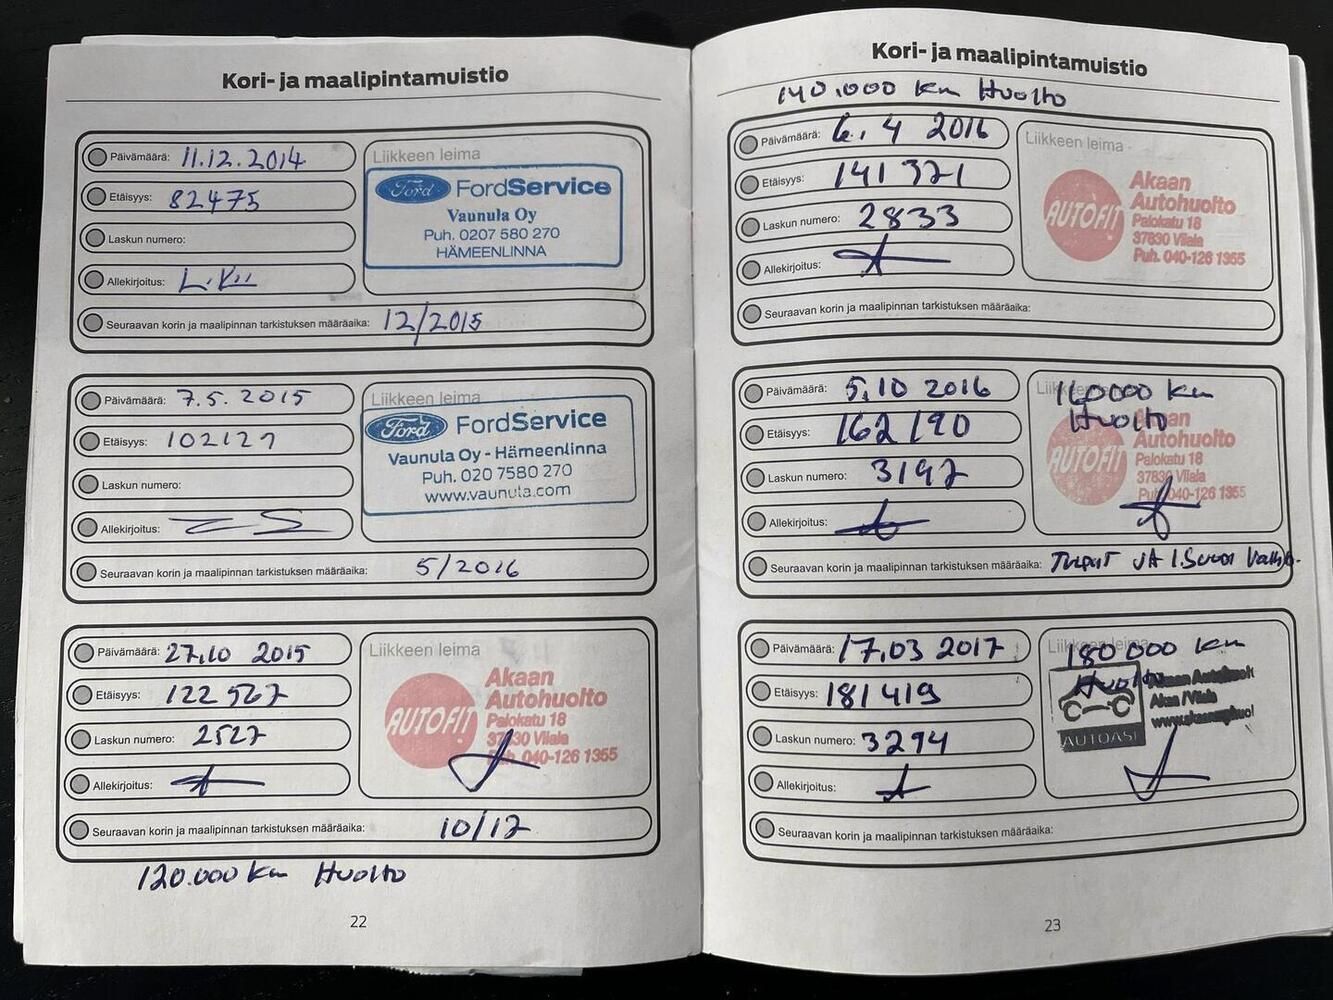 Kori- ja maalipintamuistio
Päivämäärä: 11.12.2014
Etäisyys: 82475
Laskun numero:
Allekirjoitus:
Liikkeen leima
Ford FordService
Vaunula Oy
Puh. 0207 580 270
HÄMEENLINNA
Seuraavan korin ja maalipinnan tarkistuksen määräaika: 12/2015
Päivämäärä: 7.5. 2015
Etäisyys: 102127
Laskun numero:
Allekirjoitus:
Liikkeen leima
Ford FordService
Vaunula Oy - Hämeenlinna
Puh. 020 7580 270
www.vaunula.com
Seuraavan korin ja maalipinnan tarkistuksen määräaika: 5/2016
Päivämäärä: 27.10 2015
Etäisyys: 122567
Laskun numero: 2527
Allekirjoitus:
Liikkeen leima
AUTOFIT
Akaan
Autohuolto
Palokatu 18
37830 Viiala
Puh. 040-126 1355
Seuraavan korin ja maalipinnan tarkistuksen määräaika: 10/17
120.000 km Huolto
22
Kori- ja maalipintamuistio
140.000 km Huolto
Päivämäärä: 6.4 2016
Etäisyys: 141321
Laskun numero: 2833
Allekirjoitus:
Liikkeen leima
AUTOFIT
Akaan
Autohuolto
Palokatu 18
37830 Viiala
Puh. 040-126 1355
Seuraavan korin ja maalipinnan tarkistuksen määräaika:
Päivämäärä: 5.10 2016
Etäisyys: 162190
Laskun numero: 3197
Allekirjoitus:
Liikkeen leima
160000 km
Huolto
AUTOFIT
Akaan
Autohuolto
Palokatu 18
37830 Viiala
Puh. 040-126 1355
Seuraavan korin ja maalipinnan tarkistuksen määräaika: Tulpat JA I.Suod Vaihd.
Päivämäärä: 17.03 2017
Etäisyys: 181419
Laskun numero: 3294
Allekirjoitus:
Liikkeen leima
180000 km
Huolto
AUTOASI
Akaan Autohuolt
Akaa / Viiala
Seuraavan korin ja maalipinnan tarkistuksen määräaika:
23